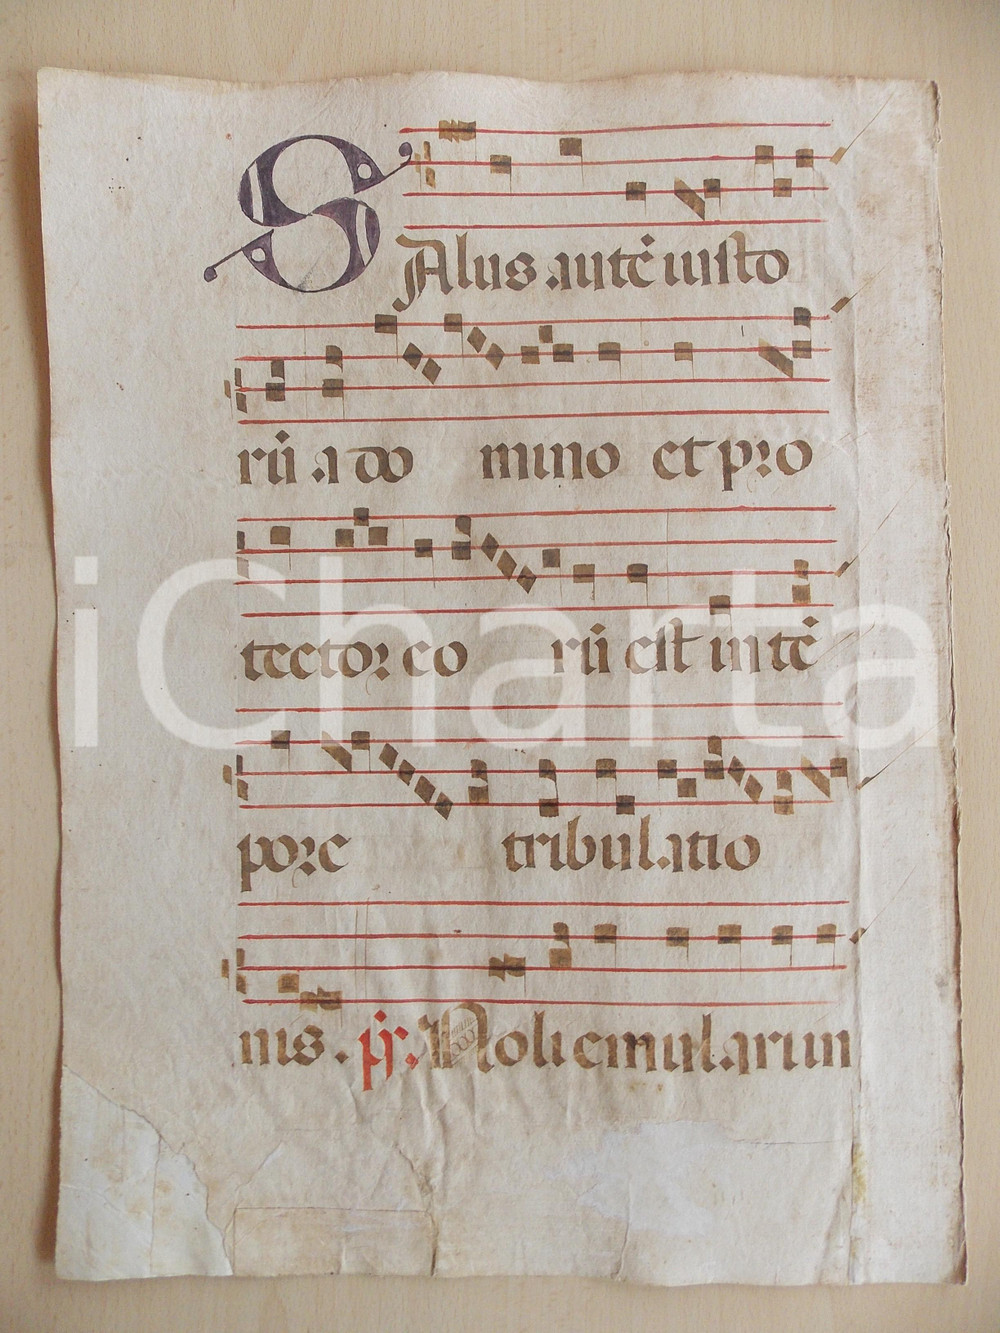 SAlus autē iusto
rū a do mino et pro
tector eo rū est in tē
pore tribulatio
nis. ps. Noli emulari in
iCharta